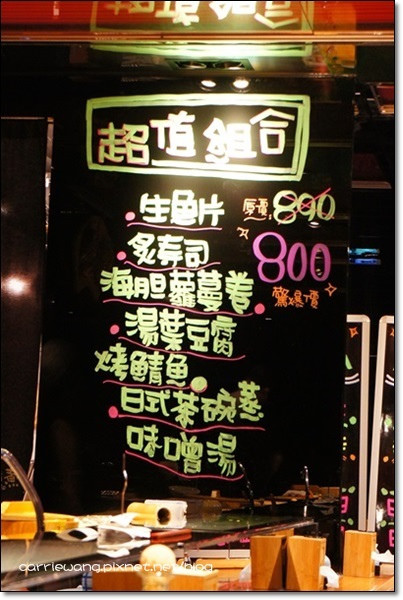 超值組合
生魚片
原價:890
炙寿司
800
海胆蘿蔓姜
驚爆價
湯葉豆腐
烤鯖魚
日式茶碗蒸
味噌湯
carriewang.pixnet.net/blog